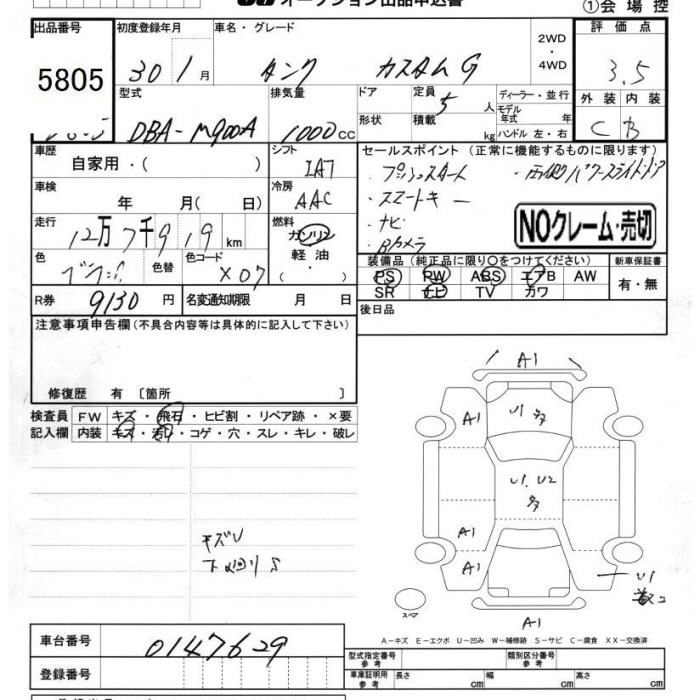 オークション出品申込書
①会場控
出品番号 初度登録年月 車名・グレード 2WD・4WD 評価点
5805 30 1月 タンク カスタムG 3.5
型式 排気量 ドア 定員 5人 ディーラー・並行 外装 内装
モデル年式 年
DBA-M900A 1000cc 形状 積載 kg ハンドル 左・右 C B
車歴 自家用・( ) シフト IA7 セールスポイント(正常に機能するものに限ります)
・プッシュスタート ・両側パワースライドドア
車検 年 月( 日) 冷房 AAC ・スマートキー
・ナビ
走行 12万7千919km 燃料 ガソリン・軽油・( ) ・Bカメラ
NOクレーム・売切
色 色替 色コード X07 装備品(純正品に限り○をつけてください) 新車保証書
PS PW ABS エアB AW 有・無
SR ナビ TV カワ
R券 9130円 名変通知期限 月 日 後日品
注意事項申告欄(不具合内容等は具体的に記入して下さい)
修復歴 有〔箇所 〕
検査員 FW キズ・飛石・ヒビ割・リペア跡・×要
記入欄 内装 キズ・汚れ・コゲ・穴・スレ・キレ・破レ
A1
A1 U1 A1
U1.U2
A1
A1 U1
キズU
下回りS
スペア
A1
A-キズ E-エクボ U-凹み W-補修跡 S-サビ C-腐食 XX-交換済
車台番号 0147629
型式指定番号 参考 類別区分番号 参考
登録番号 車庫証明用 参考 長さ cm 幅 cm 高さ cm